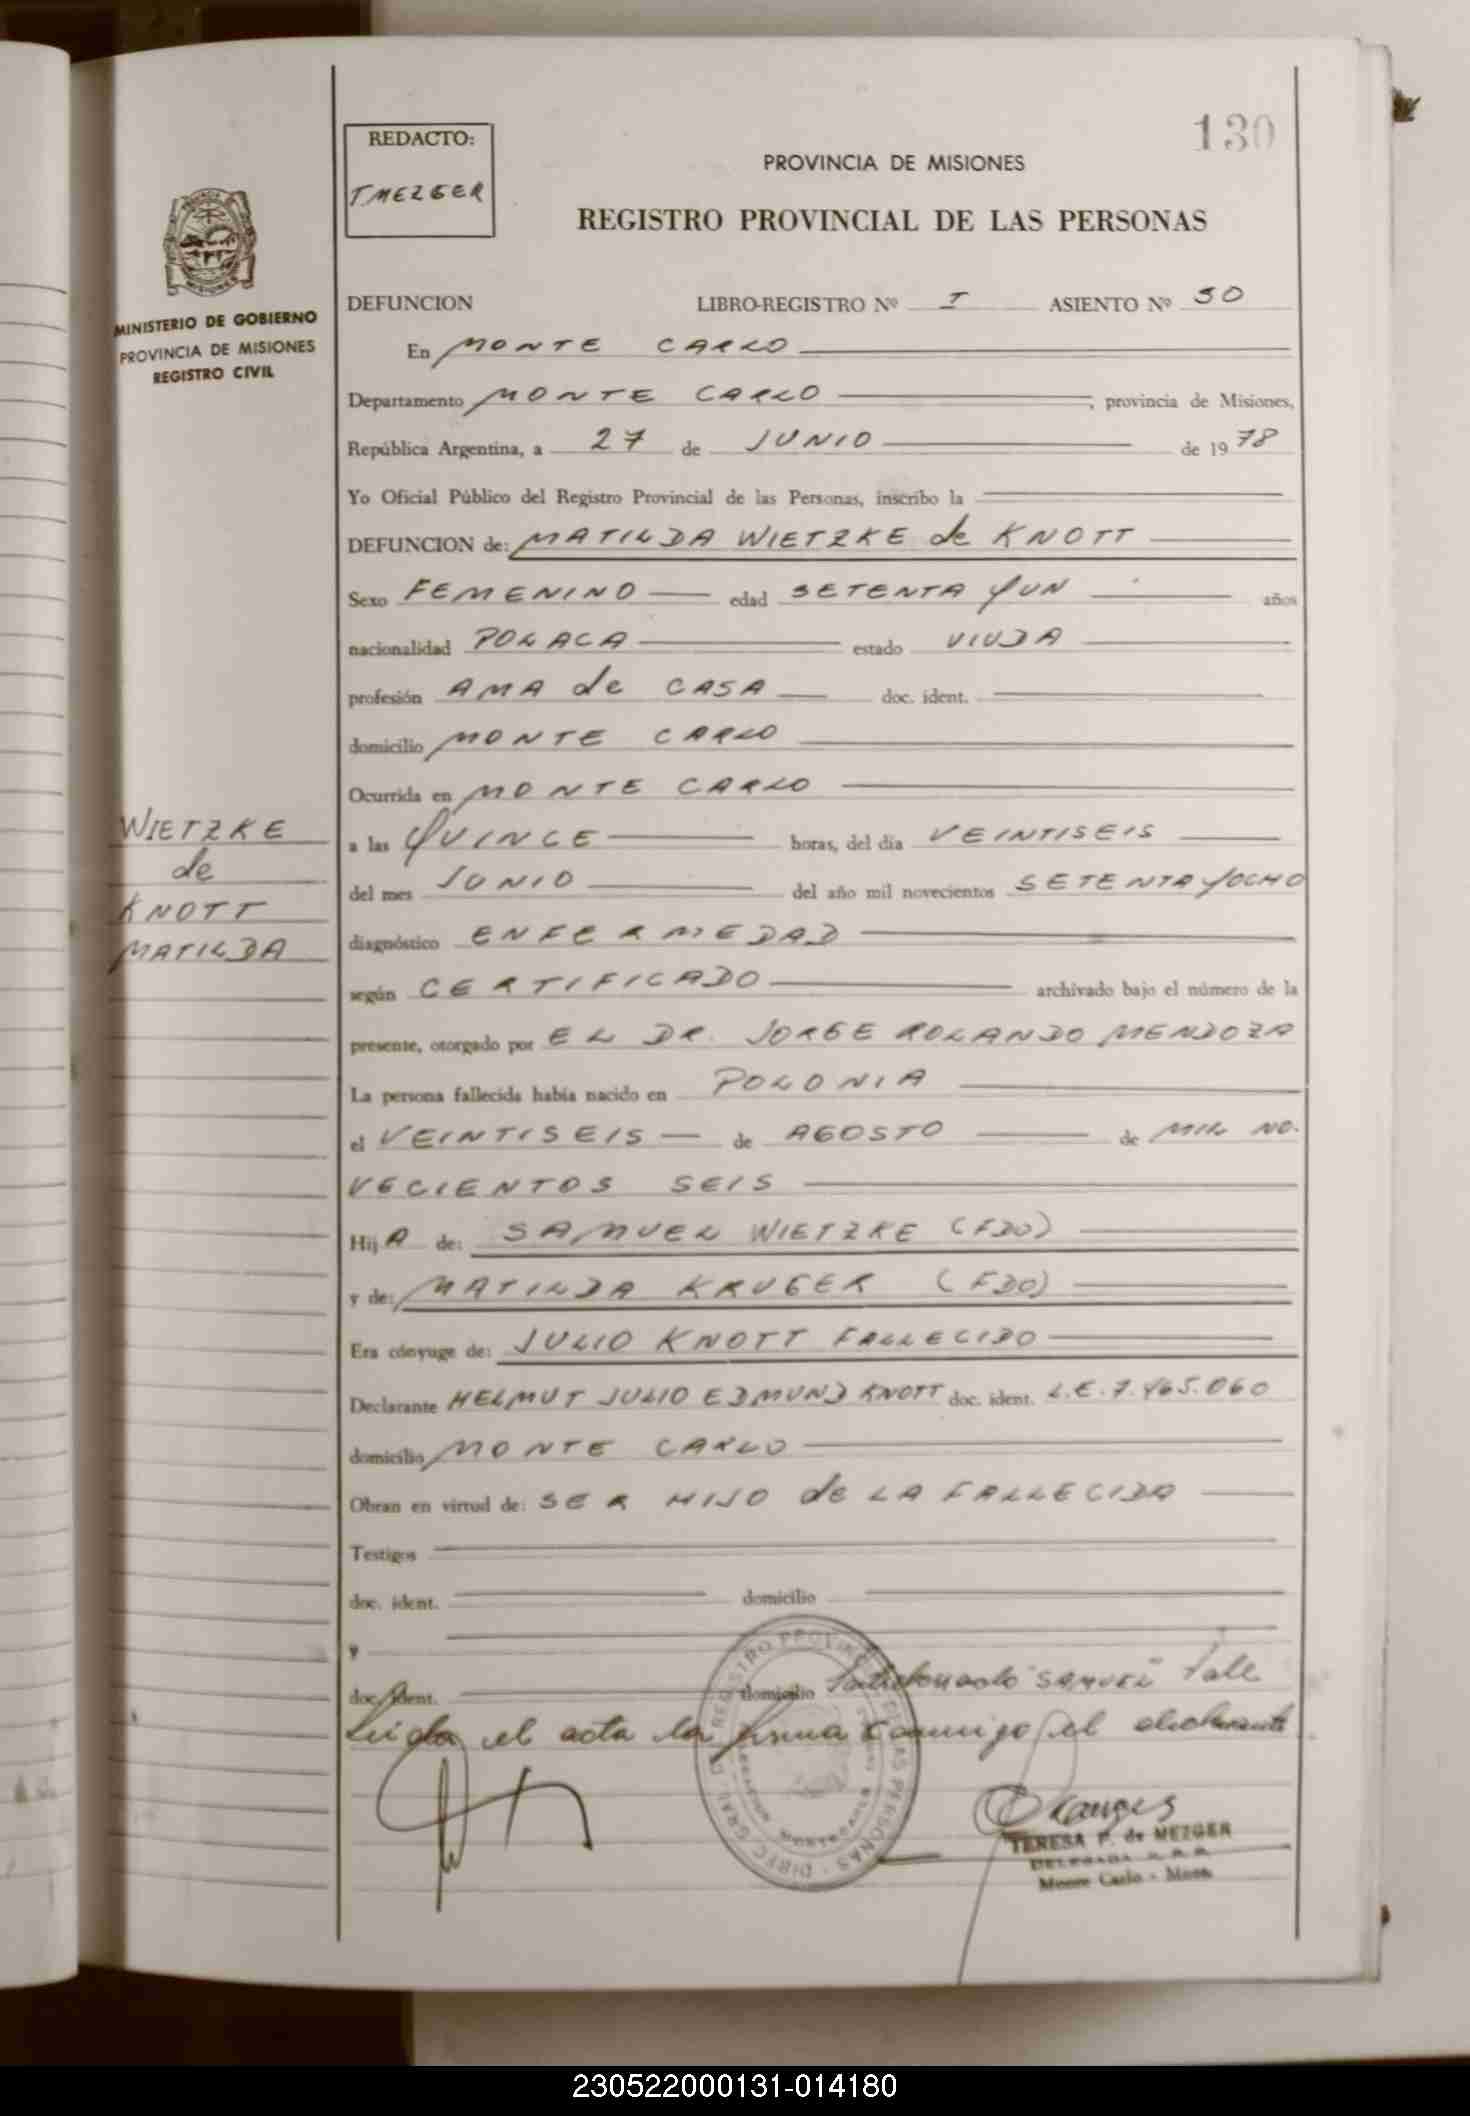 130
REDACTO:
T MEZGER
PROVINCIA DE MISIONES
REGISTRO PROVINCIAL DE LAS PERSONAS
MINISTERIO DE GOBIERNO
PROVINCIA DE MISIONES
REGISTRO CIVIL
DEFUNCION LIBRO-REGISTRO Nº I ASIENTO Nº 50
En MONTE CARLO
Departamento MONTE CARLO, provincia de Misiones,
República Argentina, a 27 de JUNIO de 1978
Yo Oficial Público del Registro Provincial de las Personas, inscribo la
DEFUNCION de: MATILDA WIETZKE de KNOTT
Sexo FEMENINO edad SETENTA Y UN años
nacionalidad POLACA estado VIUDA
profesión AMA de CASA doc. ident.
domicilio MONTE CARLO
Ocurrida en MONTE CARLO
WIETZKE
de
KNOTT
MATILDA
a las QUINCE horas, del día VEINTISEIS
del mes JUNIO del año mil novecientos SETENTA Y OCHO
diagnóstico ENFERMEDAD
según CERTIFICADO archivado bajo el número de la
presente, otorgado por EL DR. JORGE ROLANDO MENDOZA
La persona fallecida había nacido en POLONIA
el VEINTISEIS de AGOSTO de MIL NO-
VECIENTOS SEIS
Hij A de: SAMUEL WIETZKE (FDO)
y de: MATILDA KRUGER (FDO)
Era cónyuge de: JULIO KNOTT FALLECIDO
Declarante HELMUT JULIO EDMUND KNOTT doc. ident. L.E. 7.465.060
domicilio MONTE CARLO
Obran en virtud de: SER HIJO de LA FALLECIDA
Testigos
doc. ident. domicilio
y
doc. ident. domicilio "SAMUEL" Vale
Leida el acta la firma conmigo el declarante
TERESA P. de MEZGER
DELEGADA R. P. P.
Monte Carlo - Mnes.
230522000131-014180